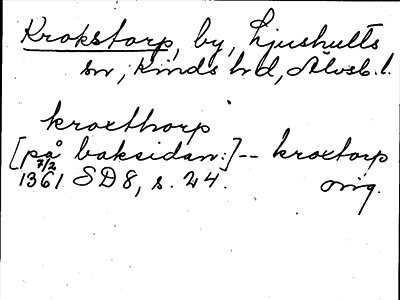 Krokstorp, by, Ljushults
sn, Kinds hd, Älvsb. l.
kroxthorp
[på baksidan:] -- kroxtorp
7/2
1361 SD 8, s. 24. orig.